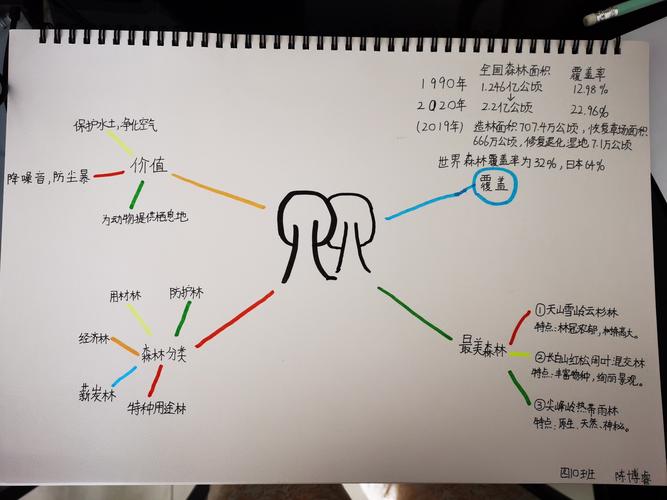 全国森林面积 覆盖率
1990年 1.246亿公顷 12.98%
2020年 2.2亿公顷 22.96%
(2019年) 造林面积707.4万公顷，恢复草场面积
666万公顷，修复退化湿地7.1万公顷
世界森林覆盖率为32%，日本64%
覆盖
保护水土，净化空气
价值
降噪音，防尘暴
为动物提供栖息地
用材林
防护林
经济林
森林分类
薪炭林
特种用途林
最美森林
①天山雪岭云杉林
特点：林冠浓郁，和特高大。
②长白山红松阔叶混交林
特点：丰富物种，绚丽景观。
③尖峰岭热带雨林
特点：原生、天然、神秘。
四10班 陈博睿